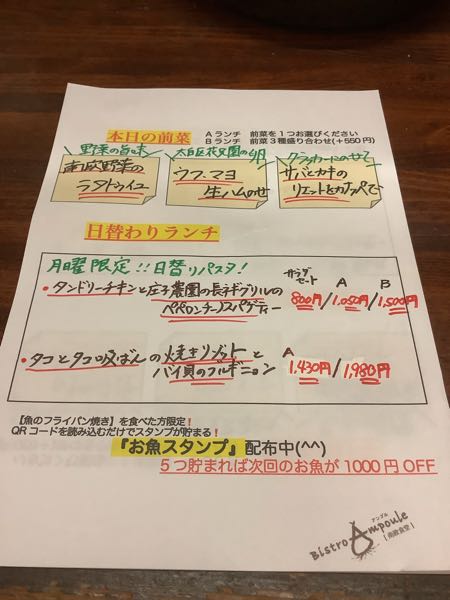 本日の前菜
Aランチ 前菜を1つお選びください
Bランチ 前菜3種盛り合わせ(+550円)
野菜の旨味
南欧野菜の
ラタトゥイユ
花兄園の卵
ウフ・マヨ
生ハムのせ
クラッカーにのせて
サバとカキの
リエットとカナッペで
日替わりランチ
月曜限定!!日替りパスタ!
サラダセット A B
・タンドリーチキンと庄子農園の長ネギグリルの
ペペロンチーノスパゲティー
800円/1,050円/1,500円
・タコとタコの吸ばんの焼きリゾットと
バイ貝のブルギニョン
A
1,430円/1,980円
【魚のフライパン焼き】を食べた方限定!
QRコードを読み込むだけでスタンプが貯まる!
『お魚スタンプ』配布中(^^)
5つ貯まれば次回のお魚が1000円OFF
アンプル
Bistro Ampoule